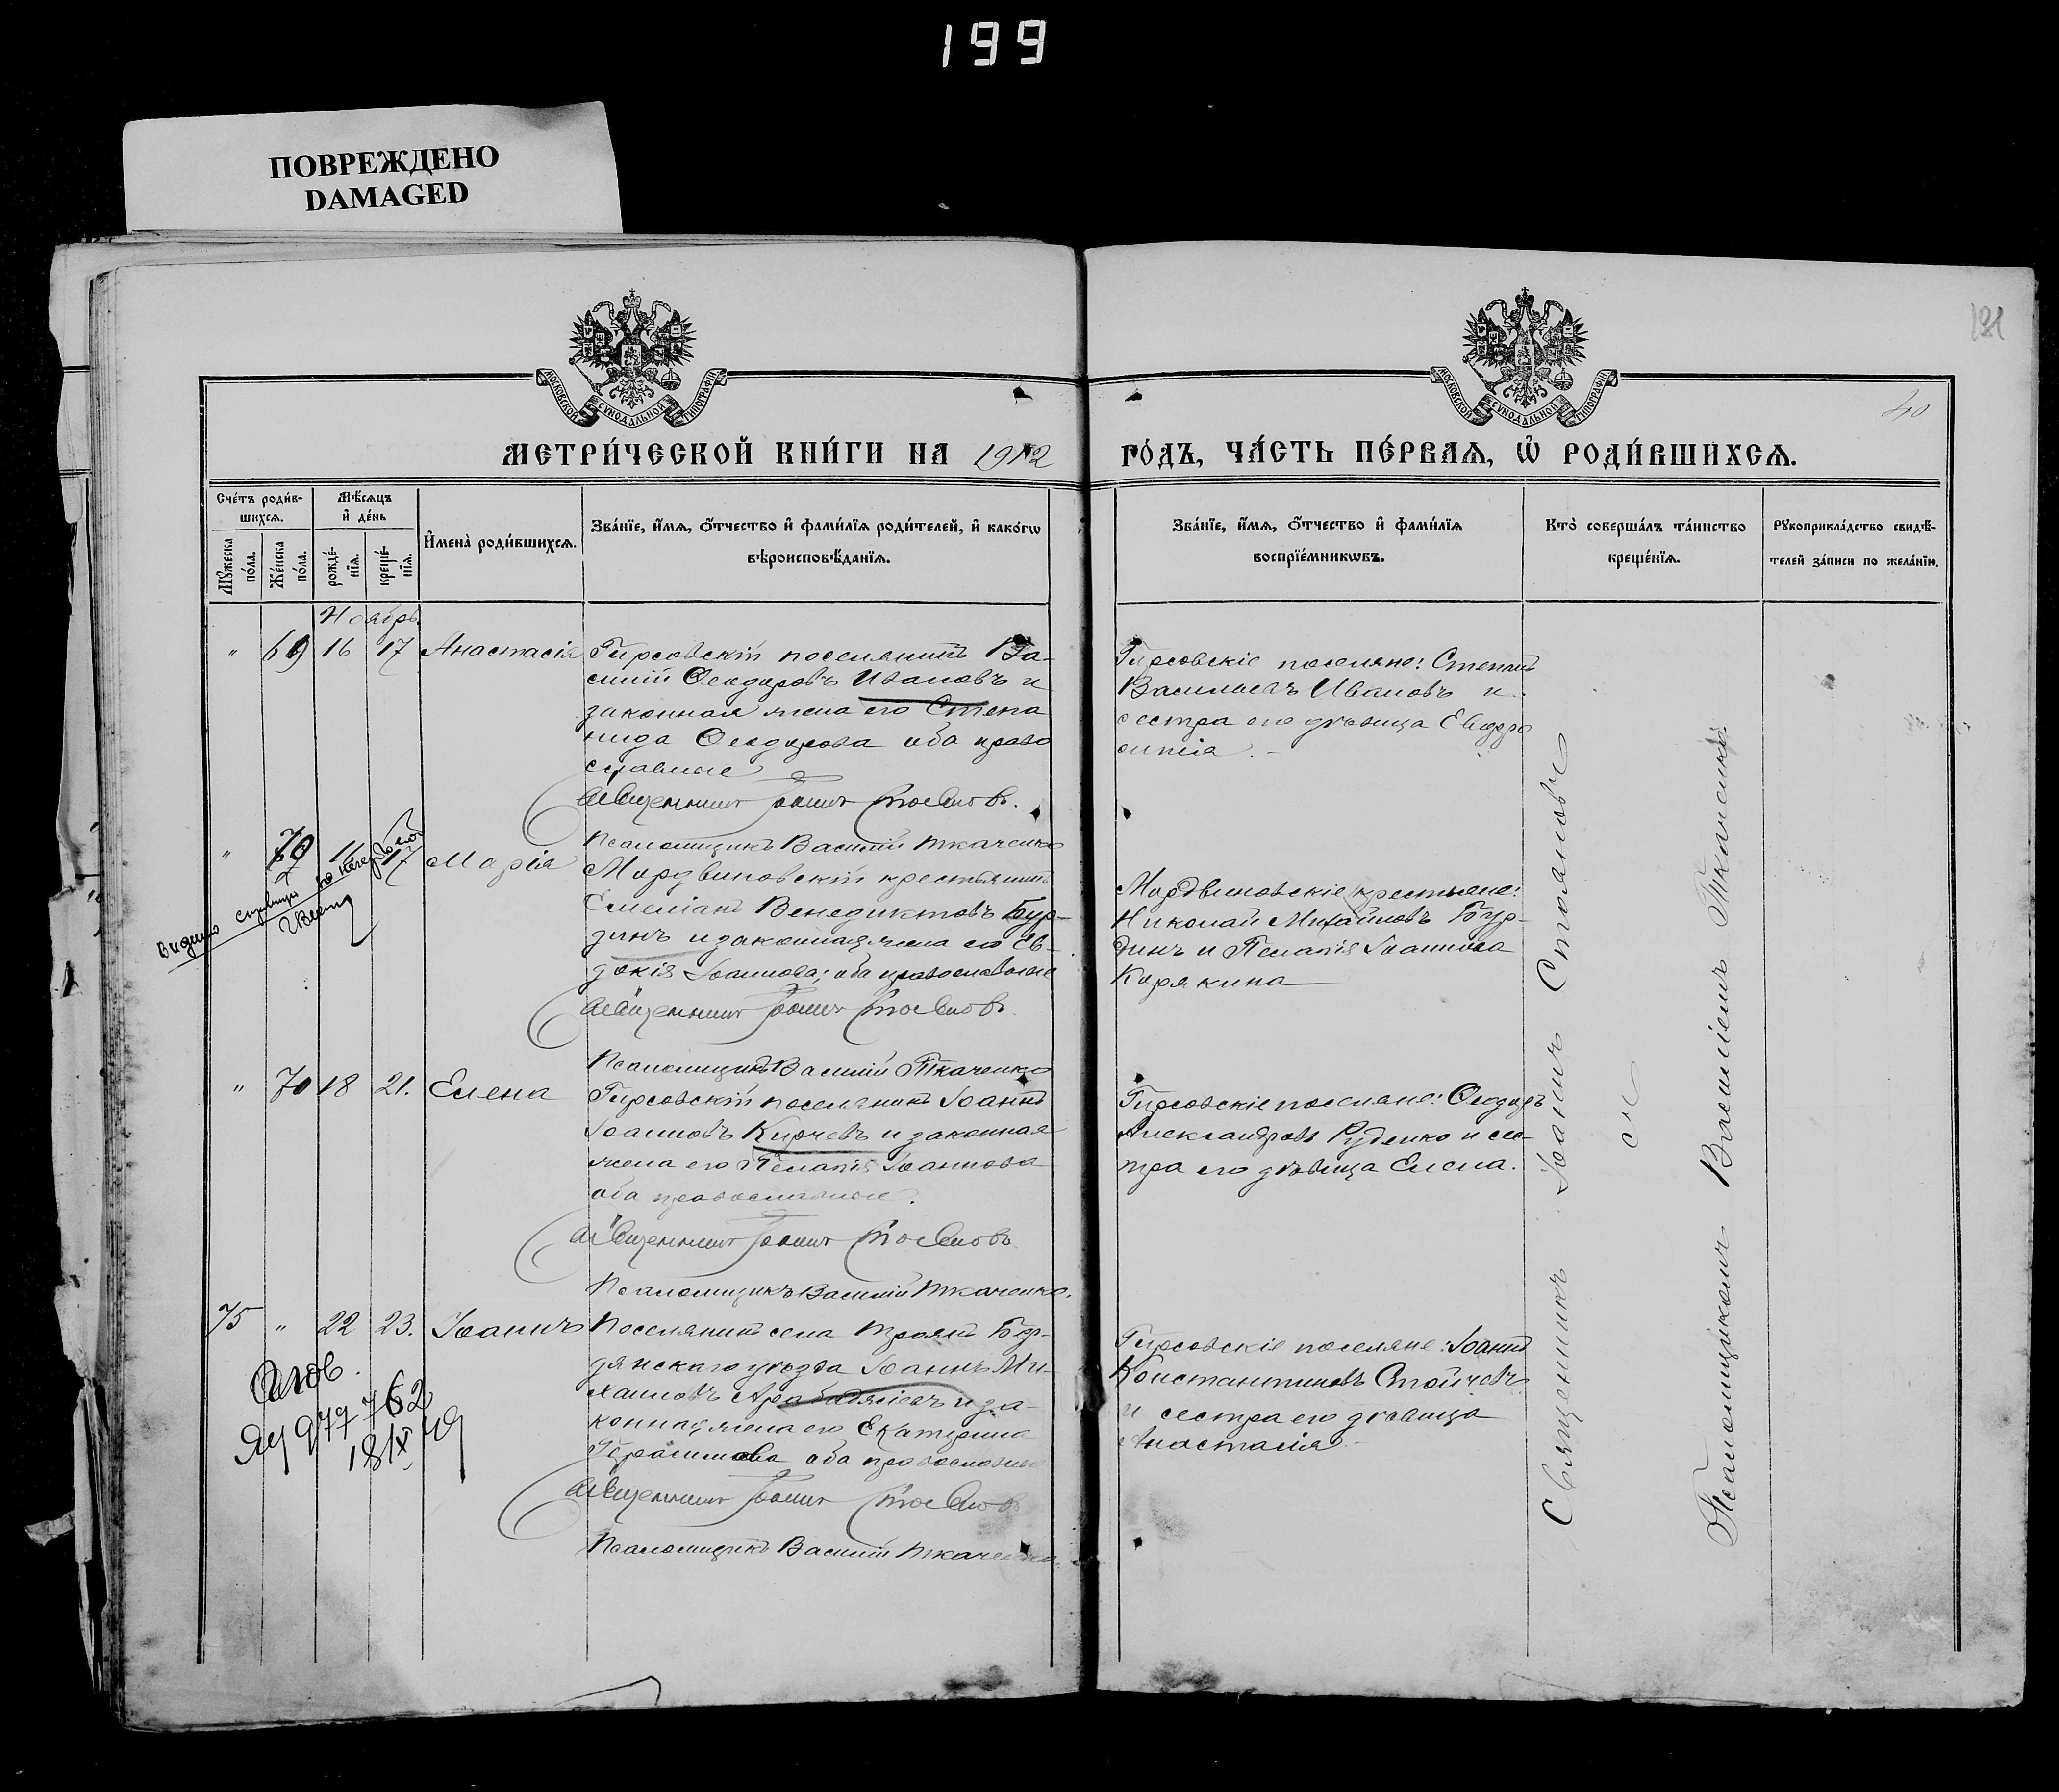 199
ПОВРЕЖДЕНО
DAMAGED
МОСКОВСКОЙ СУНОДАЛЬНОЙ ТИПОГРАФІИ
МОСКОВСКОЙ СУНОДАЛЬНОЙ ТИПОГРАФІИ
40
МЕТРИ́ЧЕСКОЙ КНИ́ГИ НА 1912
ГО́ДЪ, ЧА́СТЬ ПЕ́РВАѦ, Ѡ҆ РОДИ́ВШИХСѦ.
Сче́тъ роди́в-
шихсѧ.
Мꙋ́жеска
по́ла.
Же́нска
по́ла.
Мѣ́сѧцъ
и҆ де́нь
рожде́-
нїѧ.
креще́-
нїѧ.
И҆мена̀ роди́вшихсѧ.
Зва́нїе, и҆́мѧ, ѻ҆́тчество и҆ фами́лїѧ роди́телей, и҆ како́гѡ
вѣроисповѣ́данїѧ.
Зва́нїе, и҆́мѧ, ѻ҆́тчество и҆ фами́лїѧ
воспрїе́мникѡвъ.
Кто̀ соверша́лъ та́инство
креще́нїѧ.
Рꙋкоприкла́дство свидѣ́-
телей за́писи по жела́нїю.
Ноябрь.
" 69 16 17 Анастасія
Гирсовскій поселянинъ Ва-
силій Ѳеодоровъ Ивановъ и
законная жена его Степа
нида Ѳеодорова оба право
славные
Священникъ Іоаннъ Стояновъ.
Псаломщикъ Василій Ткаченко
Гирсовскіе поселяне: Стефанъ
Васильевъ Ивановъ и
сестра его дѣвица Евфро
синія.
" 70 16 17 Марія
Мордвиновскій крестьянинъ
Емеліанъ Венедиктовъ Бур-
динъ и законная жена его Ев-
докія Іоаннова; оба православные
Священникъ Іоаннъ Стояновъ.
Псаломщикъ Василій Ткаченко
Мордвиновскіе крестьяне:
Николай Михайловъ Бур-
динъ и Пелагія Іоаннова
Корякина
" 70 18 21. Елена
Гирсовскій поселянинъ Іоаннъ
Іоанновъ Кирчевъ и законная
жена его Пелагія Іоаннова
оба православные.
Священникъ Іоаннъ Стояновъ
Псаломщикъ Василій Ткаченко.
Гирсовскіе поселяне: Ѳеодоръ
Александровъ Руденко и сес-
тра его дѣвица Елена.
75 " 22 23. Іоаннъ
Поселянинъ села Троянъ Бер-
дянскаго уѣзда Іоаннъ Ми-
хаиловъ Арабаджіевъ и за-
конная жена его Екатерина
Герасимова оба православные
Священникъ Іоаннъ Стояновъ
Псаломщикъ Василій Ткаченко.
Гирсовскіе поселяне: Іоаннъ
Константиновъ Стойчевъ
и сестра его дѣвица
Анастасія.
977762
18/IX 49
Священникъ Іоаннъ Стояновъ
съ
Псаломщикомъ Василіемъ Ткаченко